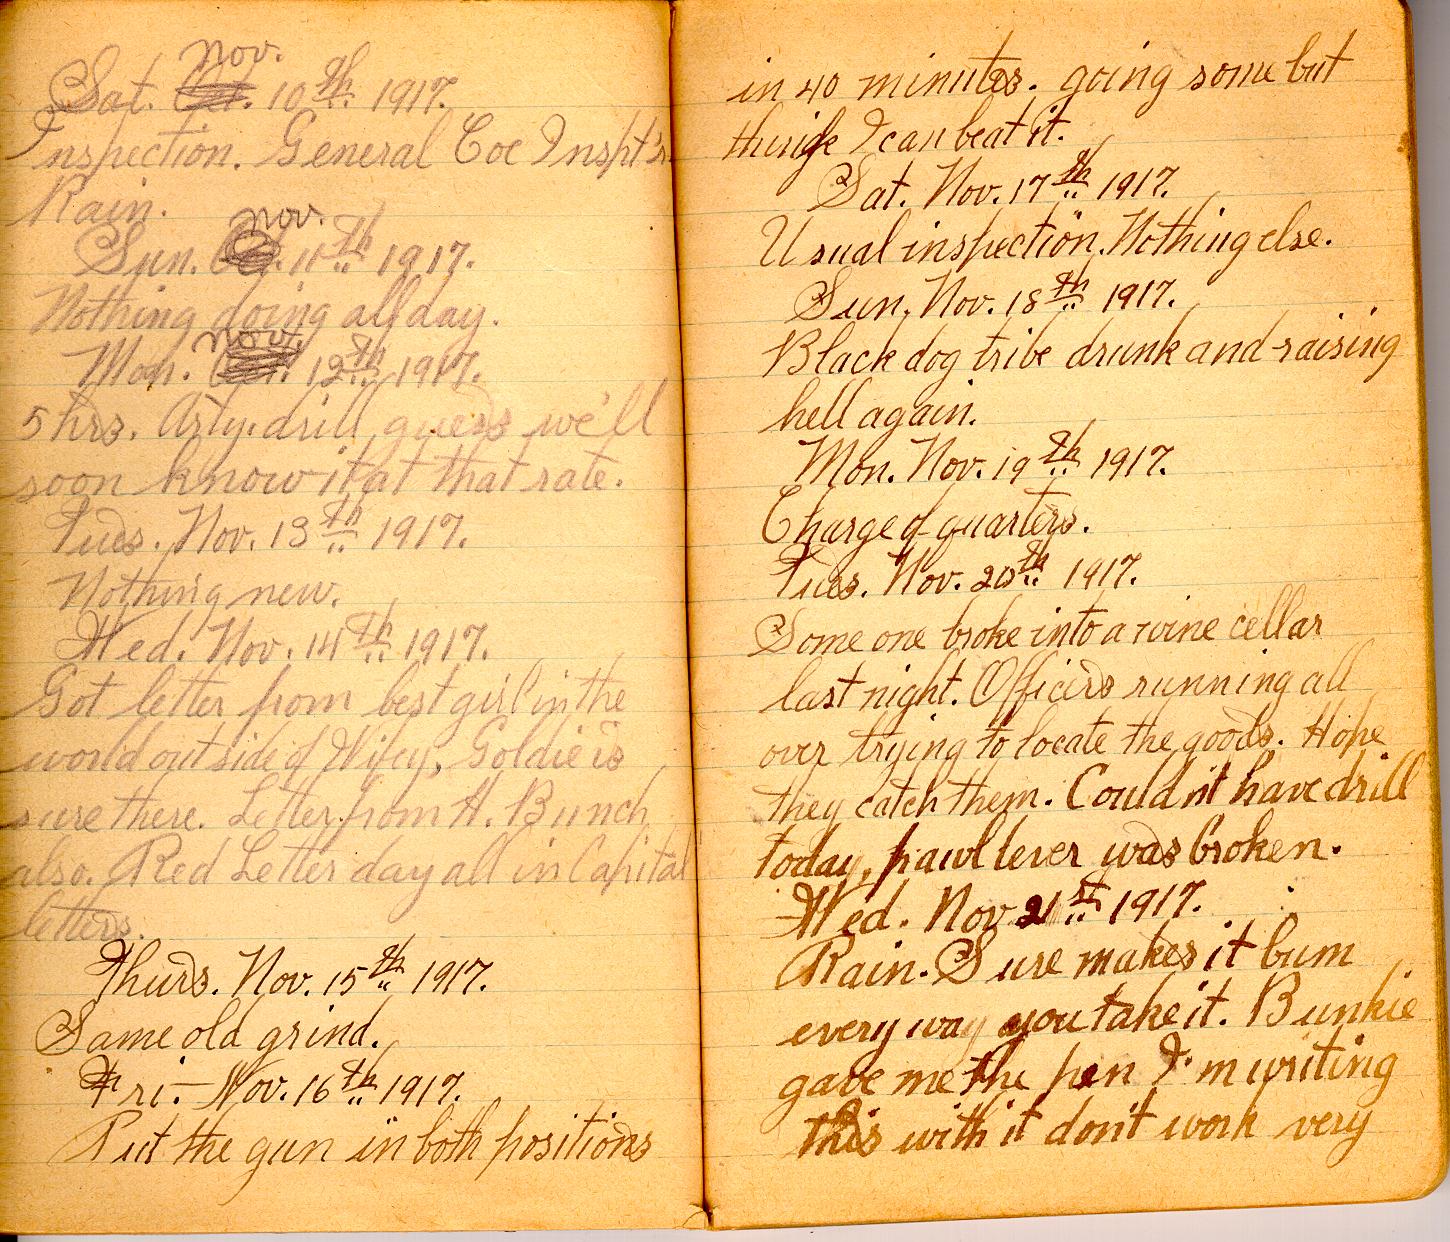 Nov.
Sat. Oct. 10th 1917.
Inspection. General Coe Inspt'r.
Rain.
Nov.
Sun. Oct. 11th 1917.
Nothing doing all day.
Nov.
Mon. Oct. 12th 1917.
5 hrs. Arty. drill, guess we'll
soon know it at that rate.
Tues. Nov. 13th 1917.
Nothing new.
Wed. Nov. 14th 1917.
Got letter from best girl in the
world outside of Wifey. Goldie is
sure there. Letter from H. Bunch
also. Red Letter day all in Capital
letters.
Thurs. Nov. 15th 1917.
Same old grind.
Fri. Nov. 16th 1917.
Put the gun in both positions
in 40 minutes. going some but
think I can beat it.
Sat. Nov. 17th 1917.
Usual inspection. Nothing else.
Sun. Nov. 18th 1917.
Black dog tribe drunk and raising
hell again.
Mon. Nov. 19th 1917.
Charge of quarters.
Tues. Nov. 20th 1917.
Some one broke into a wine cellar
last night. Officers running all
over trying to locate the goods. Hope
they catch them. Couldn't have drill
today, pawl lever was broken.
Wed. Nov 21st 1917.
Rain. Sure makes it bum
every way you take it. Bunkie
gave me the pen I'm writing
this with it don't work very